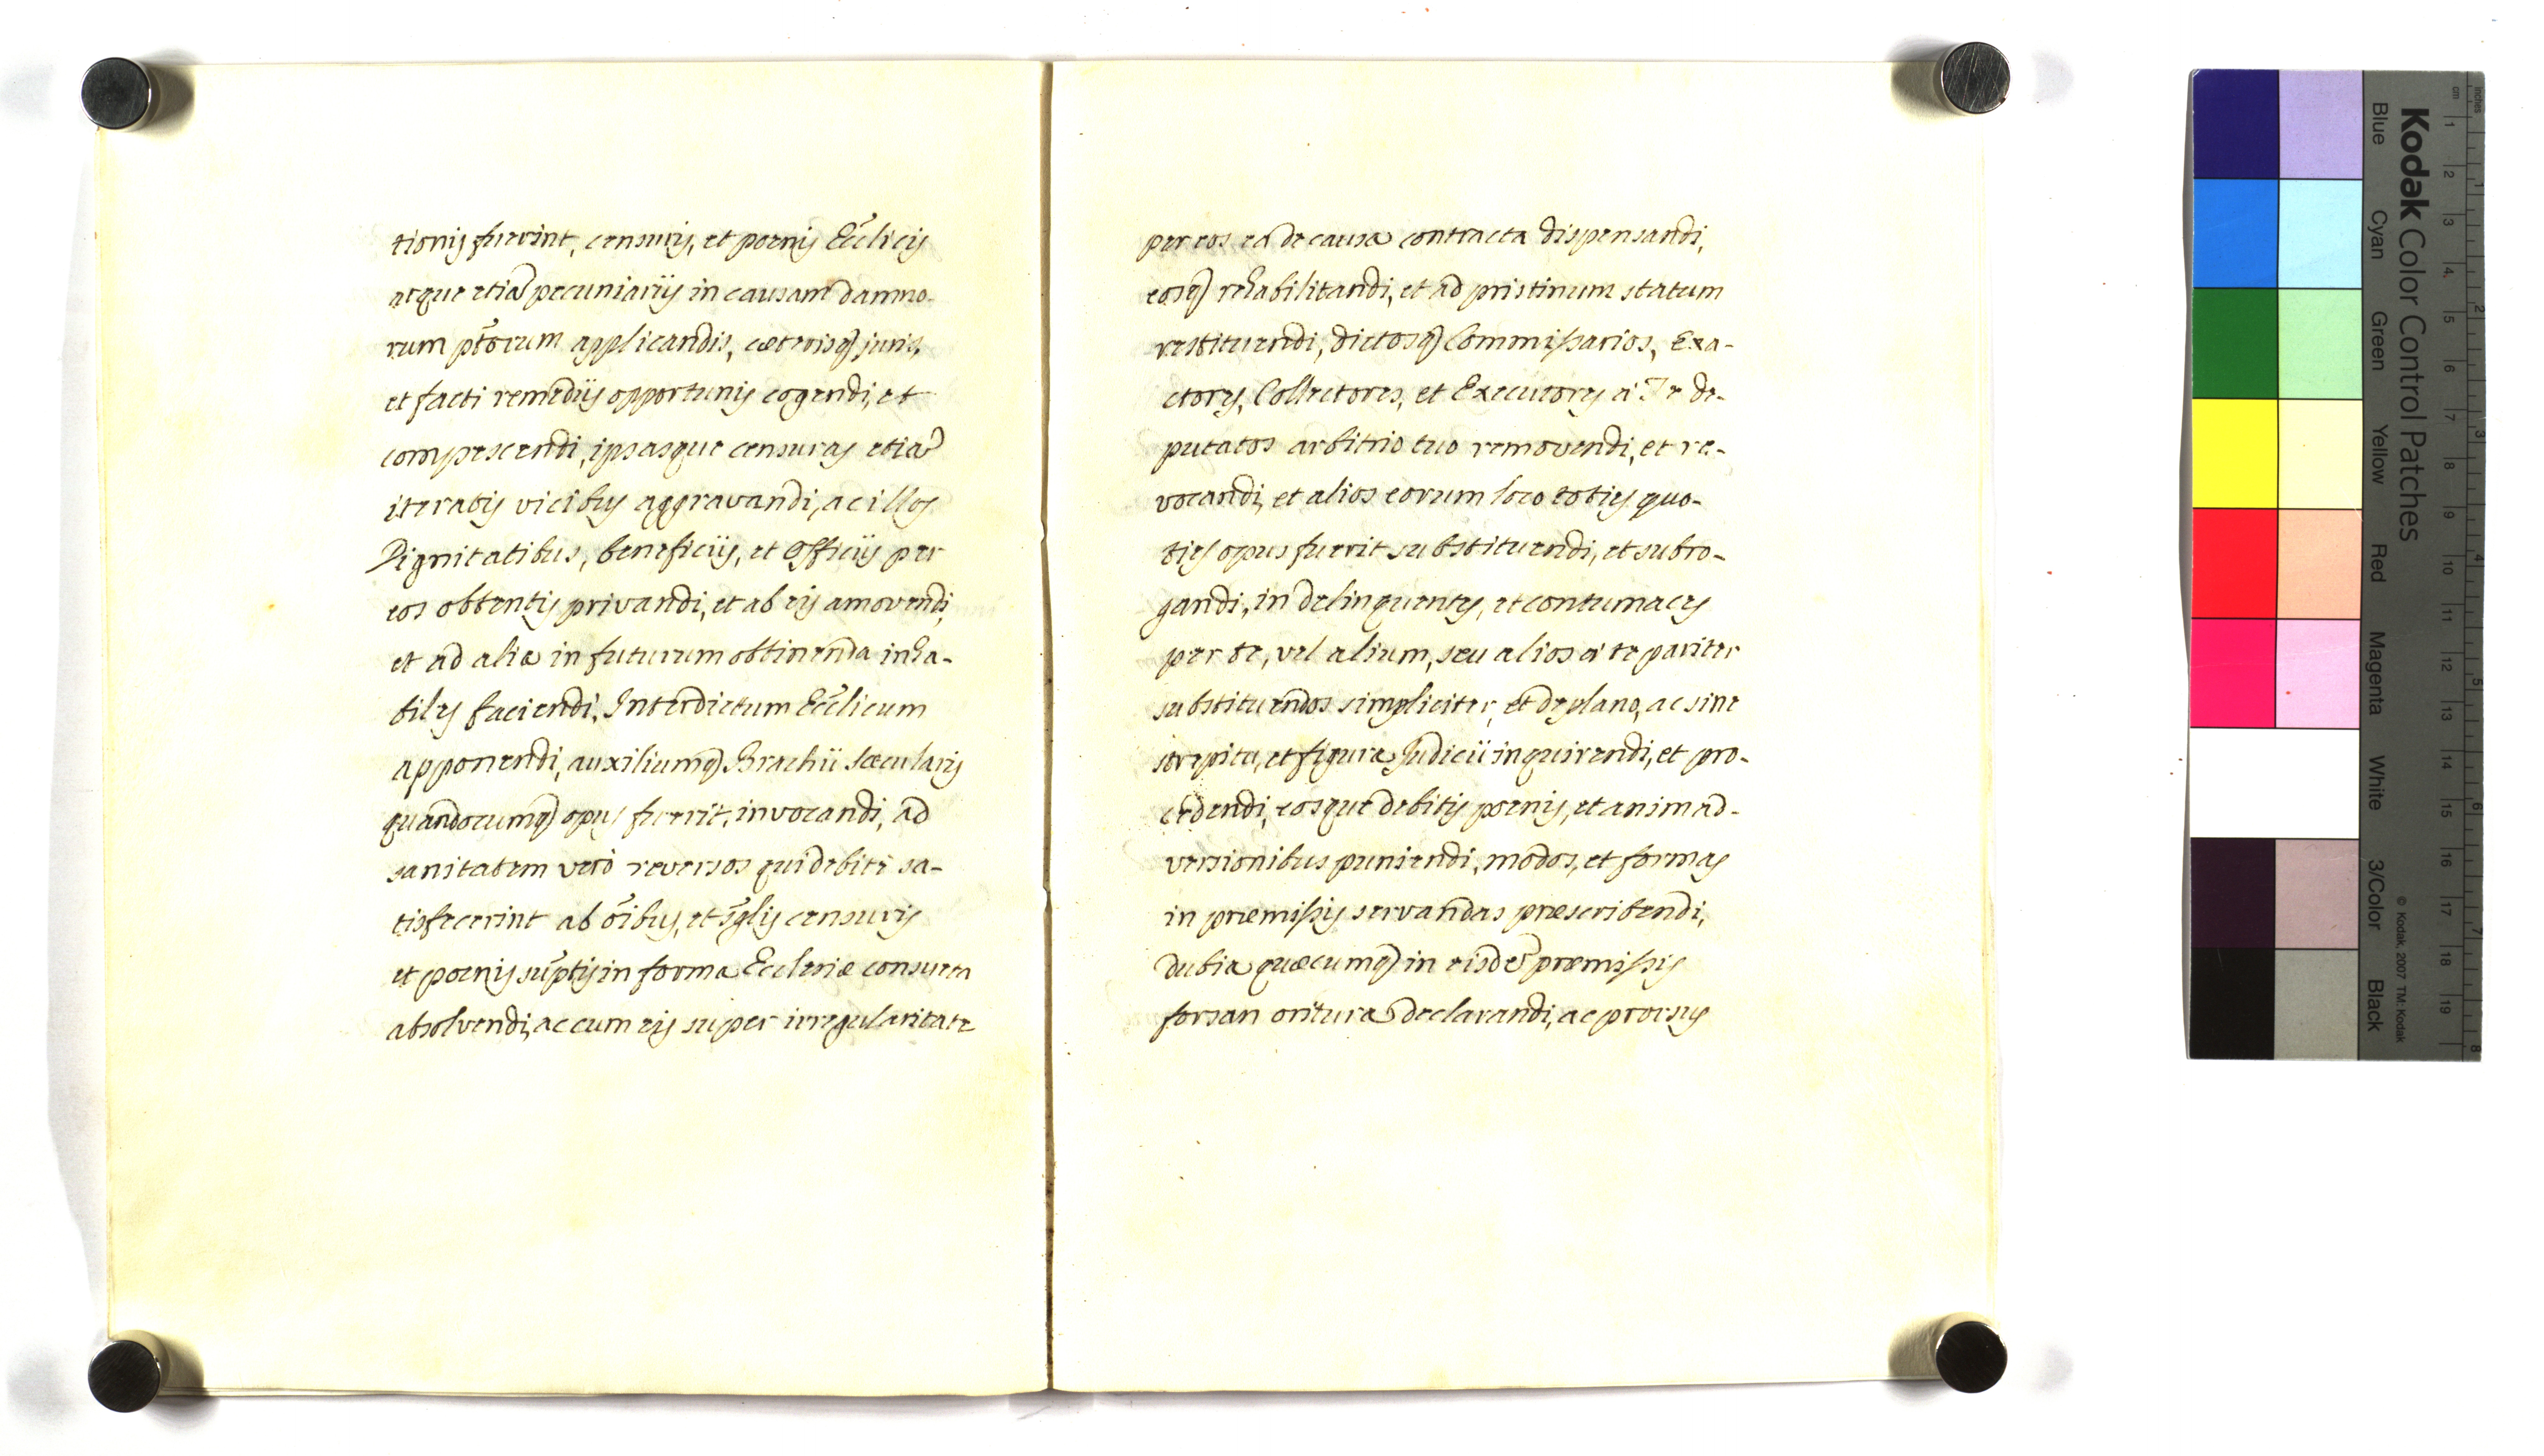 tionis fuerint, censuris, et poenis Ecc̃licis
atque etiã pecuniariis in causam damno-
rum ptõrum applicandis, cæterisq̃ juris,
et facti remediis opportunis cogendi, et
compescendi, ipsasque censuras etiã
iteratis vicibus aggravandi, ac illos
Dignitatibus, beneficiis, et Officiis per
eos obtentis privandi, et ab eis amovendi,
et ad alia in futurum obtinenda inha-
biles faciendi, Interdictum Ecc̃licum
apponendi, auxiliumq̃ Brachii Sæcularis
quandocumq̃ opus fuerit, invocandi, ad
sanitatem verò reversos qui debitè sa-
tisfecerint ab õibus, et sg̃lis censuris
et poenis sup̃tis in forma Ecclesiæ consueta
absolvendi, ac cum eis super irregularitate
per eos eâ de causa contracta dispensandi,
eosq̃ rehabilitandi, et ad pristinum statum
restituendi, dictosq̃ Commissarios, Exa-
ctores, Collectores, et Executores à Te de-
putatos arbitrio tuo removendi, et re-
vocandi, et alios eorum loco toties quo-
ties opus fuerit substituendi, et subro-
gandi, in delinquentes, et contumaces
per te, vel alium, seu alios à te pariter
substituendos simpliciter, et de plano, ac sine
strepitu, et figura Judicii inquirendi, et pro-
cedendi, eosque debitis poenis, et animad-
versionibus puniendi, modos, et formas
in præmissis servandas præscribendi,
dubia quæcumq̃ in eisdẽ præmissis
forsan oritura declarandi, ac prorsus
Kodak Color Control Patches
Blue
Cyan
Green
Yellow
Red
Magenta
White
3/Color
Black
© Kodak, 2007 TM: Kodak
inches
cm
1 2 3 4 5 6 7 8 9 10 11 12 13 14 15 16 17 18 19
1 2 3 4 5 6 7 8